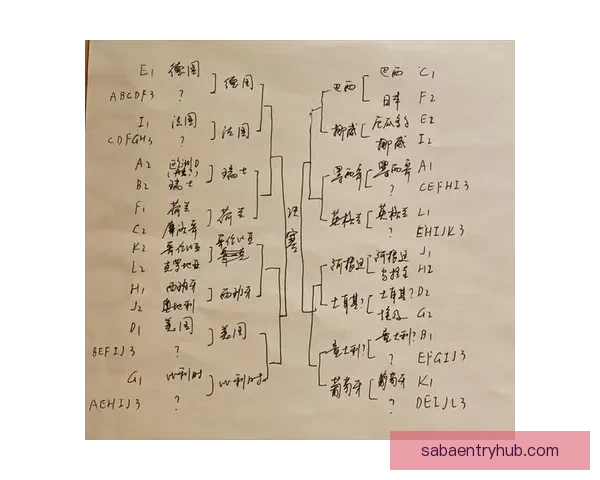 E1 德国
德国
ABCDF3 ?
I1 法国
法国
CDFGH3 ?
A2 欧洲D
瑞士
B2 瑞士
F1 荷兰
荷兰
C2 摩洛哥
K2 哥伦比亚
哥伦比亚
L2 克罗地亚
H1 西班牙
西班牙
J2 奥地利
D1 美国
美国
BEFIJ3 ?
G1 比利时
比利时
AEHIJ3 ?
决赛
巴西 C1
巴西
日本 F2
厄瓜多 E2
挪威
挪威 I2
墨西哥 A1
墨西哥
? CEFHI3
英格兰 L1
英格兰
? EHIJK3
阿根廷 J1
阿根廷
H2
土耳其? D2
土耳其?
埃及 G2
意大利? B1
意大利?
? EFGIJ3
葡萄牙 K1
葡萄牙
? DEIJL3
sabaentryhub.com